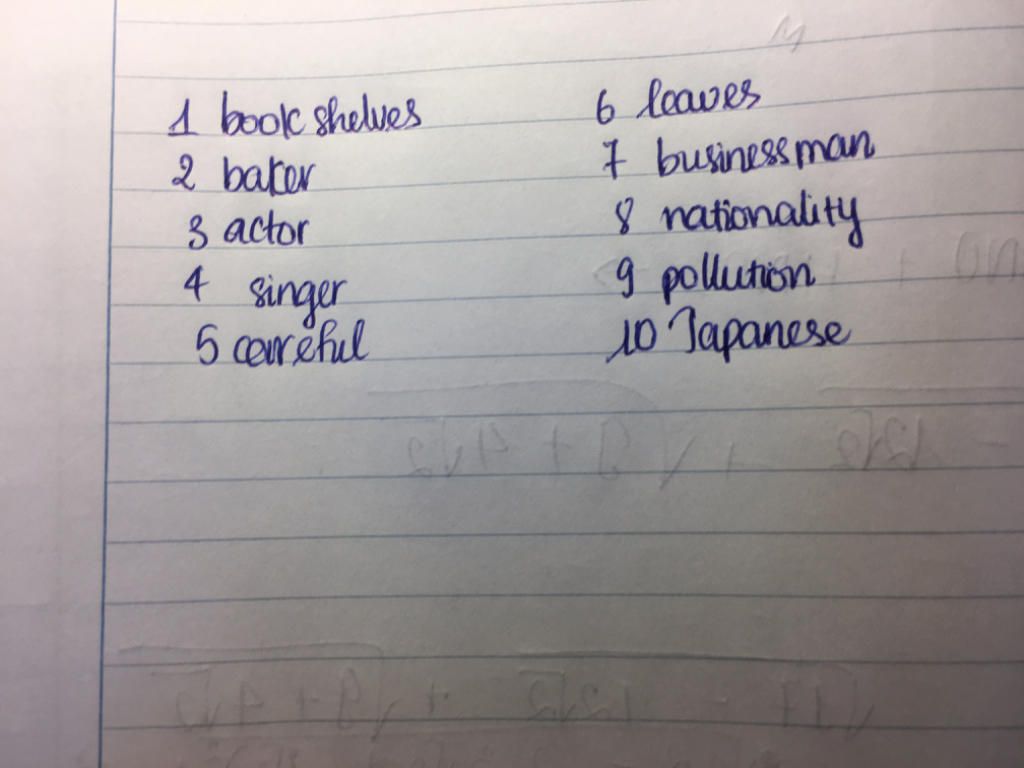 1 bookshelves
2 baker
3 actor
4 singer
5 careful
6 leaves
7 businessman
8 nationality
9 pollution
10 Japanese